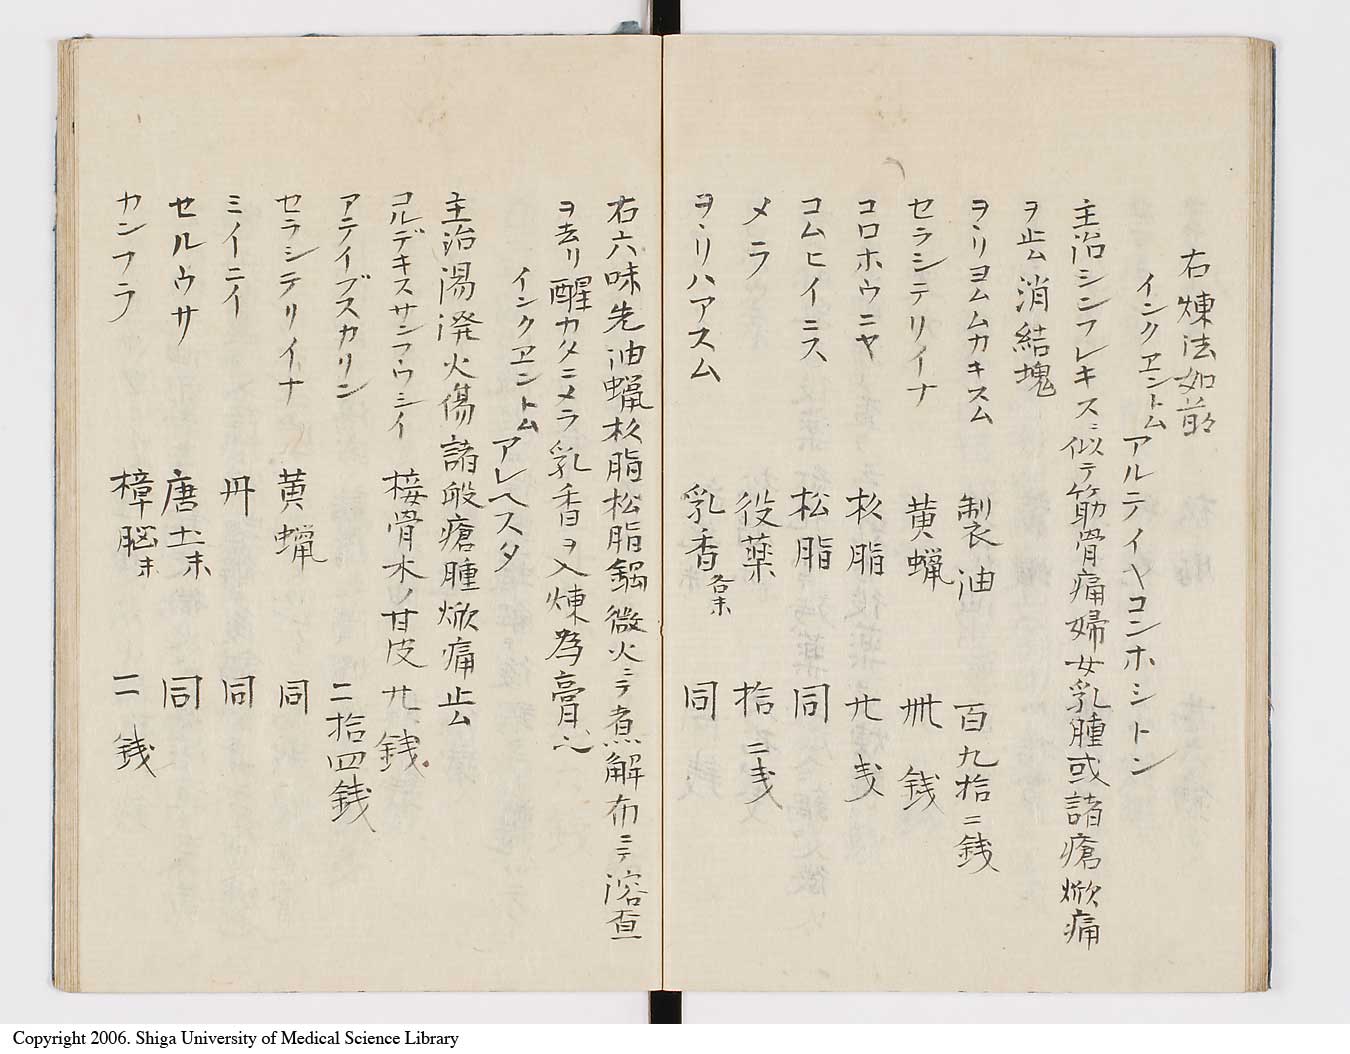 右煉法如前
インクヱントム アルティヤコンホシトン
主治シンフレキスニ似テ筋骨痛婦女乳腫或諸瘡焮痛
ヲ止ム消結塊
ヲヽリヨムムカキスム 製油 百九拾二銭
セラシテリイナ 黄蝋 卅 銭
コロホウニヤ 松脂 廿 戔
コムヒイニス 松脂 同
メラ 役薬 拾二戔
ヲヽリハアスム 乳香各末 同
右六味先油蝋松脂松脂鍋微火ニテ煮解布ニテ溶
ヲ去リ醒カタニメラ乳香ヲ入煉為膏
インクヱントム アレヘスタ
主治湯溌火傷諸般瘡腫焮痛止ム
コルデキスサンフウシイ 接骨木ノ甘皮 九銭
アテイブスカリン 二拾四銭
セラシテリイナ 黄蝋 同
ミイニイ 丹 同
セルウサ 唐土末 同
カンフラ 樟脳末 二銭
Copyright 2006. Shiga University of Medical Science Library